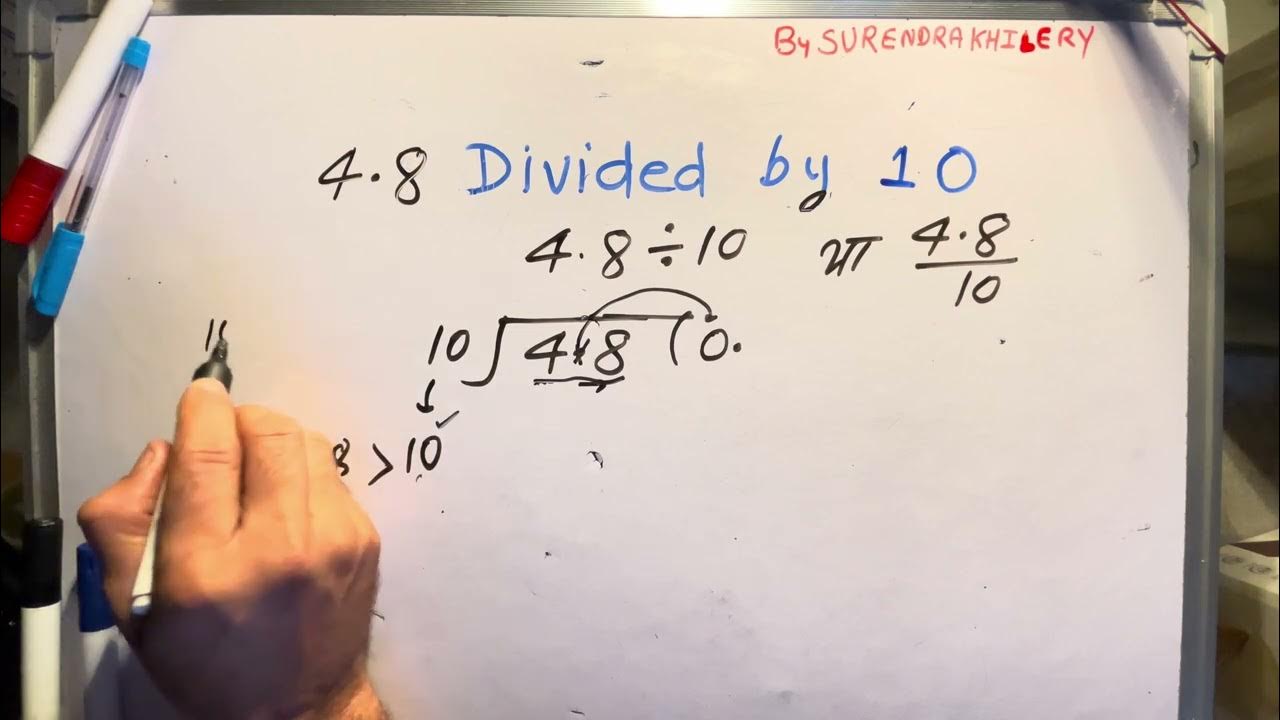 By SURENDRA KHILERY
4.8 Divided by 10
4.8 ÷ 10 या 4.8/10
10 ) 4.8 ( 0.
8 > 10